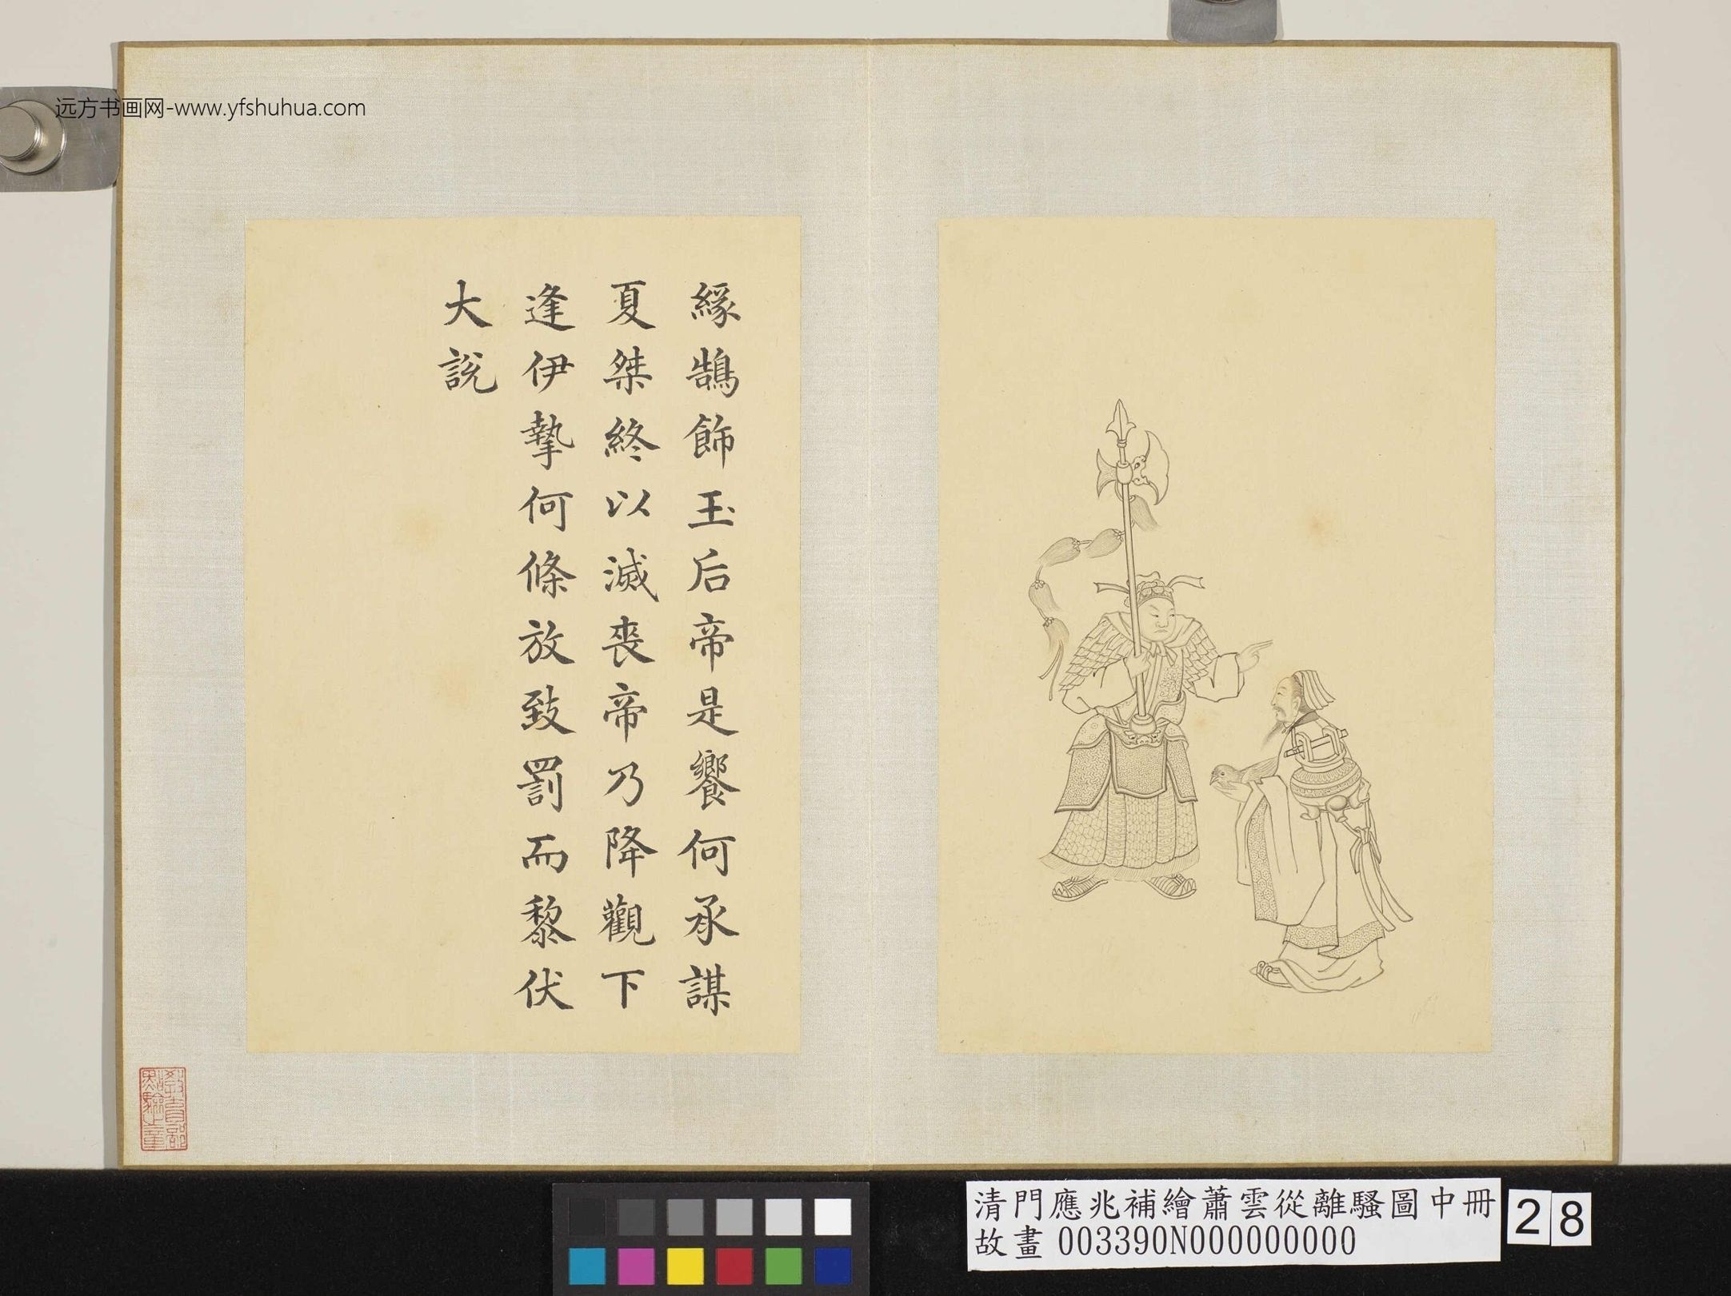 远方书画网-www.yfshuhua.com
緣鵠飾玉后帝是饗何承謀
夏桀終以滅喪帝乃降觀下
逢伊摯何條放致罰而黎伏
大說
教育部點驗之章
清門應兆補繪蕭雲從離騷圖中冊
故畫 003390N000000000
28